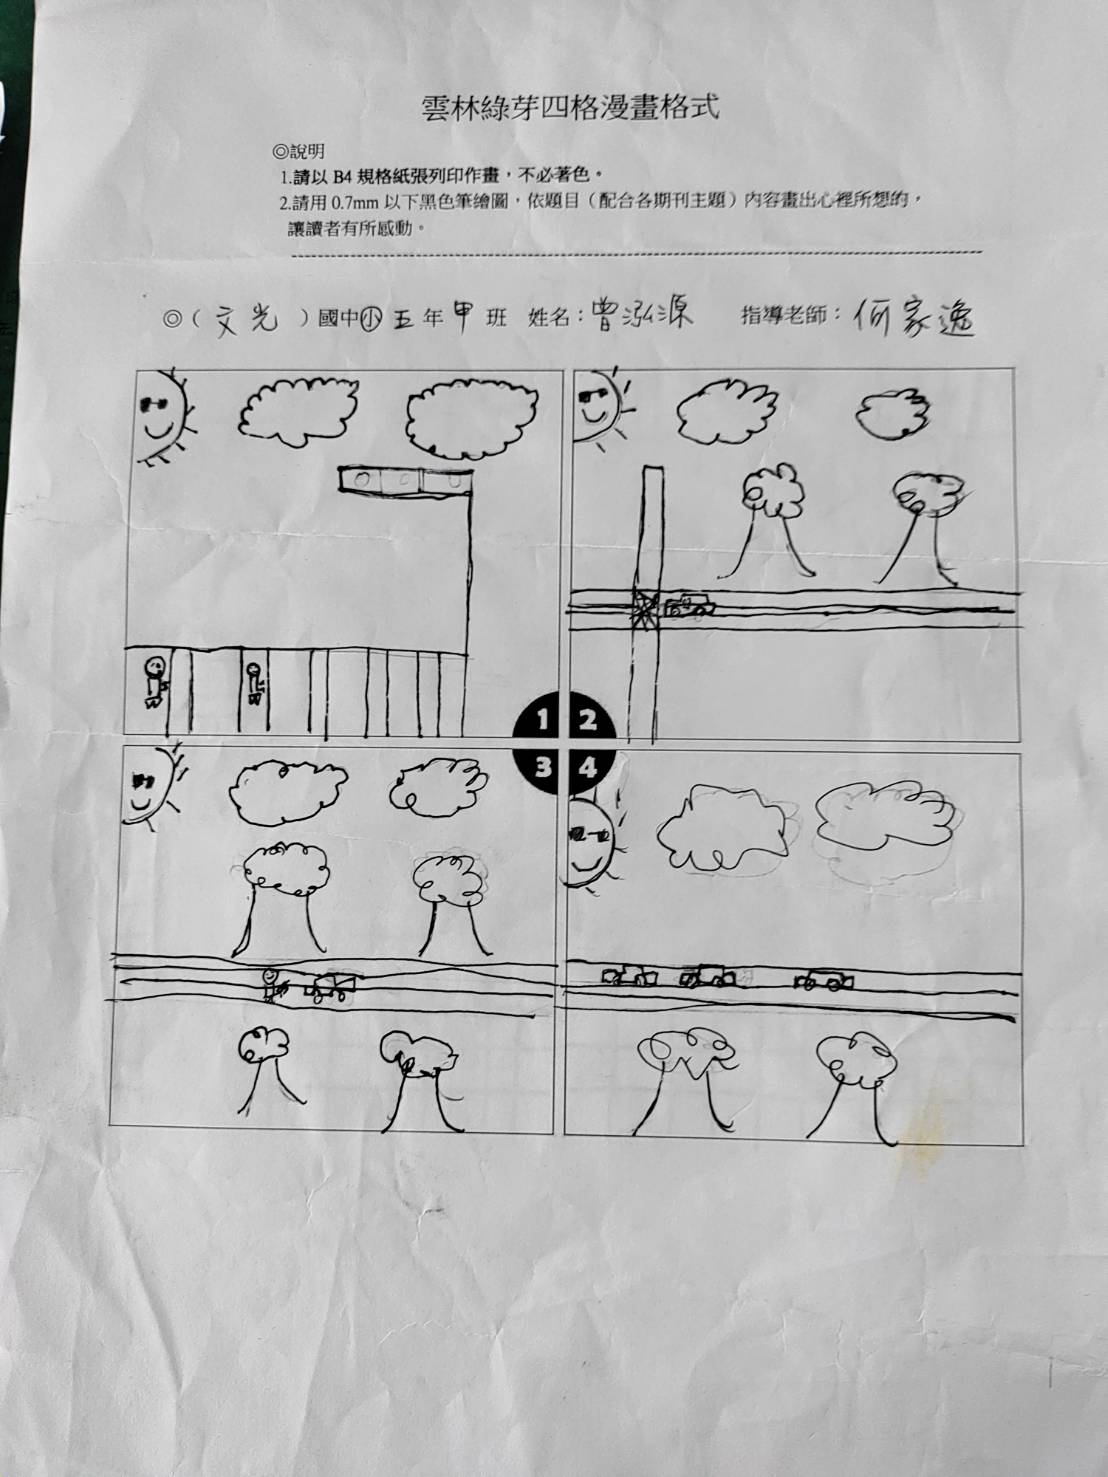 雲林綠芽四格漫畫格式
◎說明
1.請以 B4 規格紙張列印作畫，不必著色。
2.請用 0.7mm 以下黑色筆繪圖，依題目（配合各期刊主題）內容畫出心裡所想的，
讓讀者有所感動。
◎（文光）國中小 五年甲班 姓名：曾泓源 指導老師：何家逸
1 2
3 4